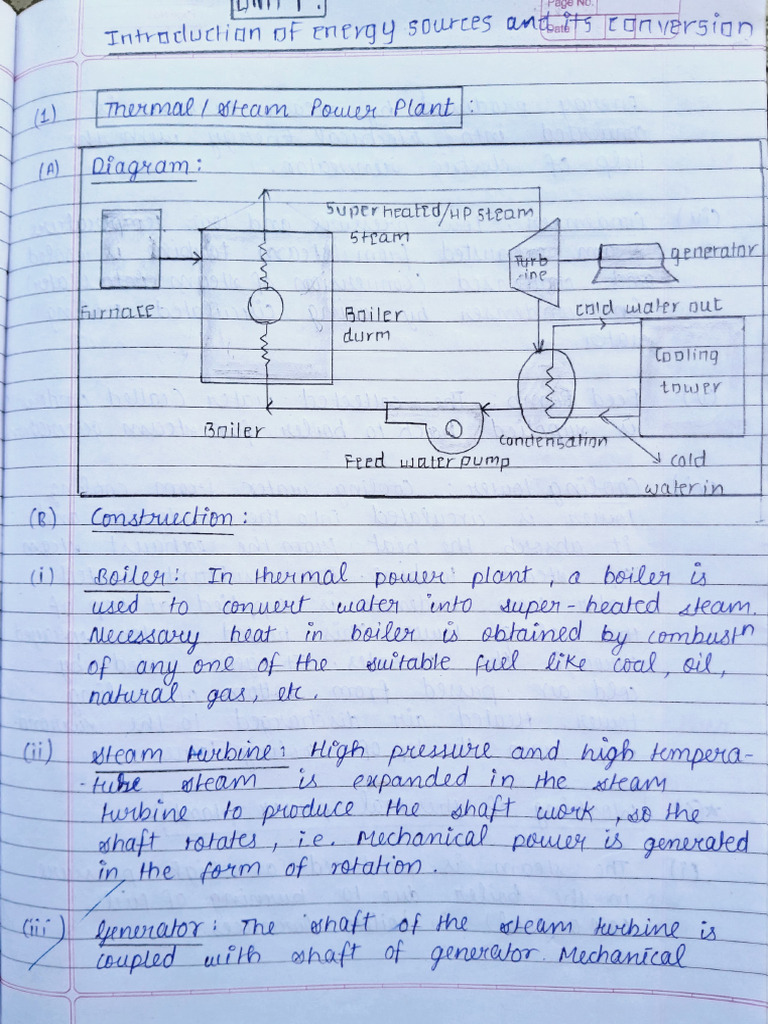 UNIT 1.
Page No.
Date
Introduction of energy sources and its conversion
(1) Thermal / Steam Power Plant :
(A) Diagram :
Superheated/HP steam
steam
Turb
ine
generator
Furnace
Boiler
durm
cold water out
Cooling
tower
Boiler
Condensation
Feed water pump
cold
water in
(B) Construction :
(i) Boiler : In thermal power plant, a boiler is
used to convert water into super-heated steam.
Necessary heat in boiler is obtained by combustn
of any one of the suitable fuel like coal, oil,
natural gas, etc.
(ii) Steam turbine : High pressure and high tempera-
-ture steam is expanded in the steam
turbine to produce the shaft work, so the
shaft rotates, i.e. Mechanical power is generated
in the form of rotation.
(iii) Generator : The shaft of the steam turbine is
coupled with shaft of generator. Mechanical